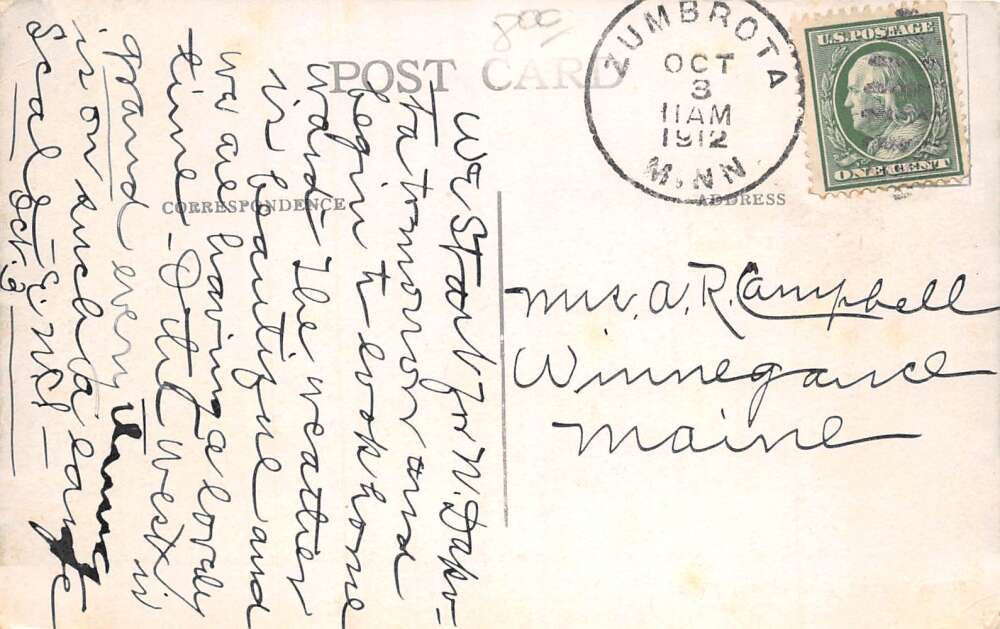 8oc
POST CARD
ZUMBROTA
OCT
3
11AM
1912
MINN
U.S. POSTAGE
ONE CENT
CORRESPONDENCE
ADDRESS
We start for N. Dako-
ta tomorrow and
begin to look home
ward. The weather
is beautiful and
we are having a lovely
time - The West is
grand everything
is on such a large
Scale
Oct 3
Mrs. A. R. Campbell
Winnegance
Maine